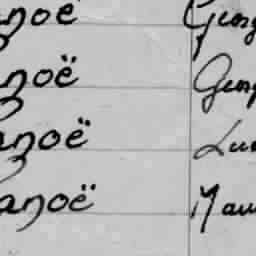 noë Georg
noë Geor
anoë Luc
anoë Mau